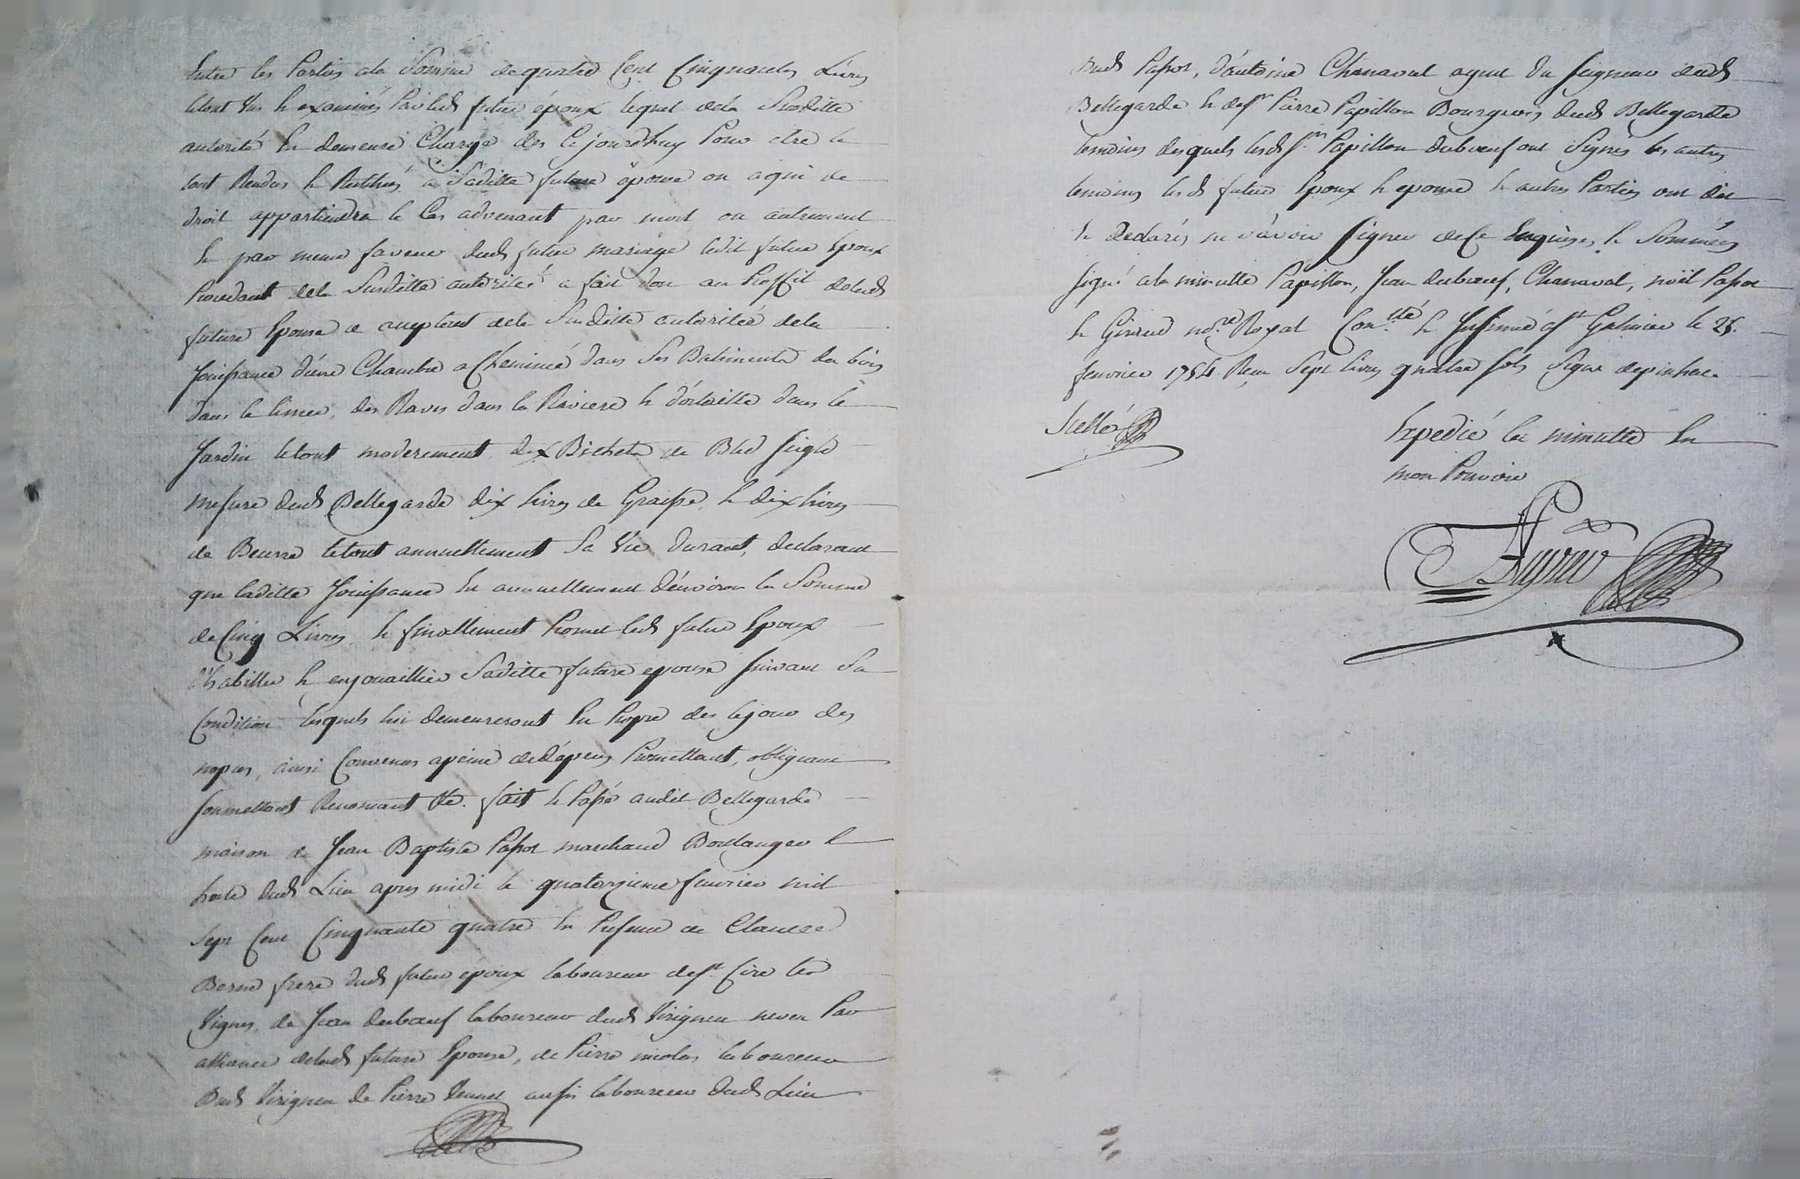 Entre les Parties a la Somme de quatre Cent Cinquantes Livres
letout Vus & examinés Par led futur époux lequel dela Susditte
autorité En demeure Chargé des Cejourdhuy Pour etre le
tout Rendus & Restitués a Saditte future épouse ou aqui de
droit appartiendra le Cas advenant par mort ou autrement
& par meme faveur dud futur mariage ledit futur Epoux
Procedant dela Susditte autorité a fait don au Proffit delad
future Epouse ce acceptant dela Susditte autoritée dela
Jouissance d'une Chambre a Cheminée dans Ses Batiments du bois
dans le limer, des Raves dans la Raviere & d'ortaille dans le
Jardin letout moderement. dix Bichets de Bled Seigle
mesure dud Bellegarde dix livres de Graisse, & dix livres
de Beurre letout annuellement Sa Vie durant, declarant
que laditte Jouissance Est annuellement d'environ la Somme
de Cinq Livres, & finallement Promet led futur Epoux
d'habiller & enjouailler Saditte future epouse Suivant Sa
Condition lesquels lui demeureront En Propre des lejour des
nopces, ainsi Convenus apeine de dépens Promettant, obligeant
Soumettant Renonçant &c. fait & Passé audit Bellegarde
maison de Jean Baptiste Papot marchand Boulanger &
hoste dud Lieu apres midi le quatorzieme fevrier mil
Sept Cent Cinquante quatre En Presence de Claude
Berne frere dud futur epoux laboureur de St. Cire les
Vignes, de Jean duboeuf laboureur dud Virigneu neveu Par
alliance delad future Epouse, de Pierre nicolas laboureur
dud Virigneu de Pierre aussi laboureur dud Lieu
dud Papot, d'antoine Chanaval agent du Seigneur dud
Bellegarde & de Sr. Pierre Papillon Bourgeois dud Bellegarde
temoins desquels lesd Srs. Papillon duboeuf ont Signés les autres
temoins lesd futur Epoux & epouse & autres Parties ont dit
& declarés ne s'avoir Signer de Ce Enquises, & Sommées
Signé a la minutte Papillon, Jean duboeuf, Chanaval, noël Papot
& Giraud nore. Royal Conllé & Insinué a St Galmier le 28.
fevrier 1754 Reçu Sept livres quatre Sols Signé depinhac.
Scellé
Expedié la minutte En
mon Pouvoir